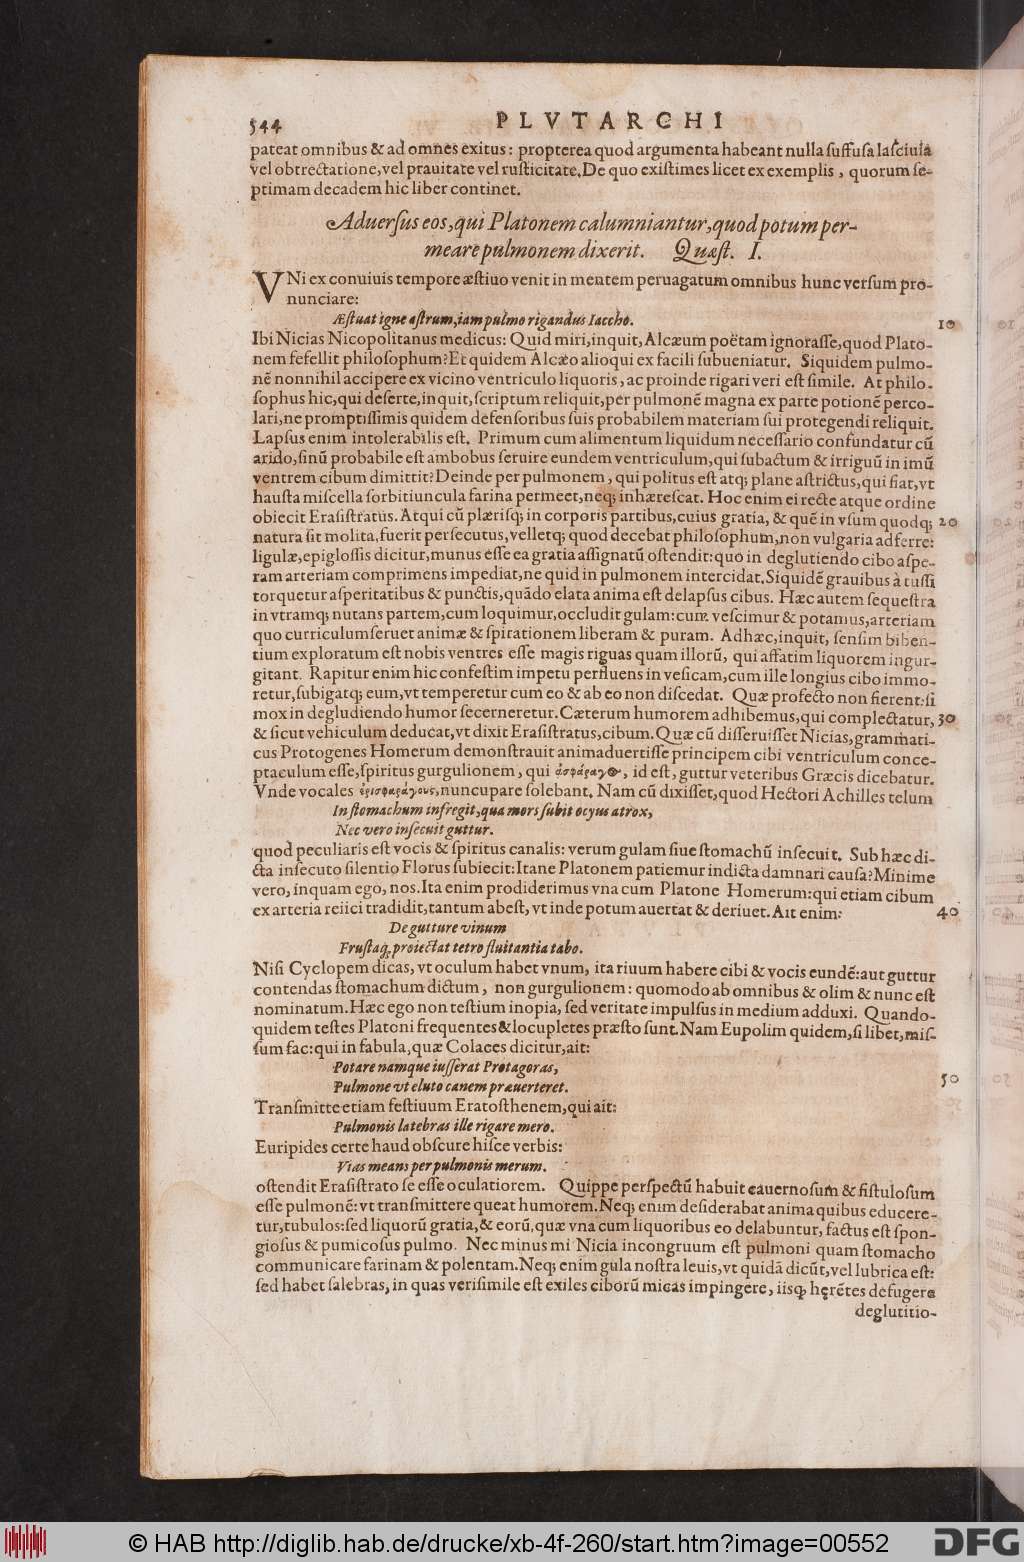 544 PLVTARCHI
pateat omnibus & ad omnes exitus: propterea quod argumenta habeant nulla suffusa lasciuia
vel obtrectatione, vel prauitate vel rusticitate. De quo existimes licet ex exemplis, quorum se-
ptimam decadem hic liber continet.
Aduersus eos, qui Platonem calumniantur, quod potum per-
meare pulmonem dixerit. Quæst. I.
VNi ex conuiuis tempore æstiuo venit in mentem peruagatum omnibus hunc versum pro-
nunciare:
Æstuat igne astrum, iam pulmo rigandus Iaccho. 10
Ibi Nicias Nicopolitanus medicus: Quid miri, inquit, Alcæum poëtam ignorasse, quod Plato-
nem fefellit philosophum? Et quidem Alcæo alioqui ex facili subueniatur. Siquidem pulmo-
nē nonnihil accipere ex vicino ventriculo liquoris, ac proinde rigari veri est simile. At philo-
sophus hic, qui deserte, inquit, scriptum reliquit, per pulmonē magna ex parte potionē perco-
lari, ne promptissimis quidem defensoribus suis probabilem materiam sui protegendi reliquit.
Lapsus enim intolerabilis est. Primum cum alimentum liquidum necessario confundatur cū
arido, sinū probabile est ambobus seruire eundem ventriculum, qui subactum & irriguū in imū
ventrem cibum dimittit? Deinde per pulmonem, qui politus est atq; plane astrictus, qui fiat, vt
hausta miscella sorbitiuncula farina permeet, neq; inhærescat. Hoc enim ei recte atque ordine
obiecit Erasistratus. Atqui cū plærisq; in corporis partibus, cuius gratia, & quē in vsum quodq; 20
natura sit molita, fuerit persecutus, velletq; quod decebat philosophum, non vulgaria adferre:
ligulæ, epiglossis dicitur, munus esse ea gratia assignatū ostendit: quo in deglutiendo cibo aspe-
ram arteriam comprimens impediat, ne quid in pulmonem intercidat. Siquidē grauibus à tussi
torquetur asperitatibus & punctis, quādo elata anima est delapsus cibus. Hæc autem sequestra
in vtramq; nutans partem, cum loquimur, occludit gulam: cum vescimur & potamus, arteriam
quo curriculum seruet animæ & spirationem liberam & puram. Adhæc, inquit, sensim biben-
tium exploratum est nobis ventres esse magis riguas quam illorū, qui affatim liquorem ingur-
gitant. Rapitur enim hic confestim impetu perfluens in vesicam, cum ille longius cibo immo-
retur, subigatq; eum, vt temperetur cum eo & ab eo non discedat. Quæ profecto non fierent: si
mox in degludiendo humor secerneretur. Cæterum humorem adhibemus, qui complectatur, 30
& sicut vehiculum deducat, vt dixit Erasistratus, cibum. Quæ cū disseruisset Nicias, grammati-
cus Protogenes Homerum demonstrauit animaduertisse principem cibi ventriculum conce-
ptaculum esse, spiritus gurgulionem, qui ἀσφάραγος, id est, guttur veteribus Græcis dicebatur.
Vnde vocales ἐρισφαράγους, nuncupare solebant. Nam cū dixisset, quod Hectori Achilles telum
In stomachum infregit, qua mors subit ocyus atrox,
Nec vero insecuit guttur.
quod peculiaris est vocis & spiritus canalis: verum gulam siue stomachū insecuit. Sub hæc di-
cta insecuto silentio Florus subiecit: Itane Platonem patiemur indicta damnari causa? Minime
vero, inquam ego, nos. Ita enim prodiderimus vna cum Platone Homerum: qui etiam cibum
ex arteria reiici tradidit, tantum abest, vt inde potum auertat & deriuet. Ait enim: 40
De gutture vinum
Frustaq; proiectat tetro fluitantia tabo.
Nisi Cyclopem dicas, vt oculum habet vnum, ita riuum habere cibi & vocis eundē: aut guttur
contendas stomachum dictum, non gurgulionem: quomodo ab omnibus & olim & nunc est
nominatum. Hæc ego non testium inopia, sed veritate impulsus in medium adduxi. Quando-
quidem testes Platoni frequentes & locupletes præsto sunt. Nam Eupolim quidem, si libet, mis-
sum fac: qui in fabula, quæ Colaces dicitur, ait:
Potare namque iusserat Protagoras,
Pulmone vt eluto canem præuerteret. 50
Transmitte etiam festiuum Eratosthenem, qui ait:
Pulmonis latebras ille rigare mero.
Euripides certe haud obscure hisce verbis:
Vias means per pulmonis merum.
ostendit Erasistrato se esse oculatiorem. Quippe perspectū habuit cauernosum & fistulosum
esse pulmonē: vt transmittere queat humorem. Neq; enim desiderabat anima quibus educere-
tur, tubulos: sed liquorū gratia, & eorū, quæ vna cum liquoribus eo delabuntur, factus est spon-
giosus & pumicosus pulmo. Nec minus mi Nicia incongruum est pulmoni quam stomacho
communicare farinam & polentam. Neq; enim gula nostra leuis, vt quidā dicūt, vel lubrica est:
sed habet salebras, in quas verisimile est exiles ciborū micas impingere, iisq; hęrētes defugere
deglutitio-
© HAB http://diglib.hab.de/drucke/xb-4f-260/start.htm?image=00552 DFG